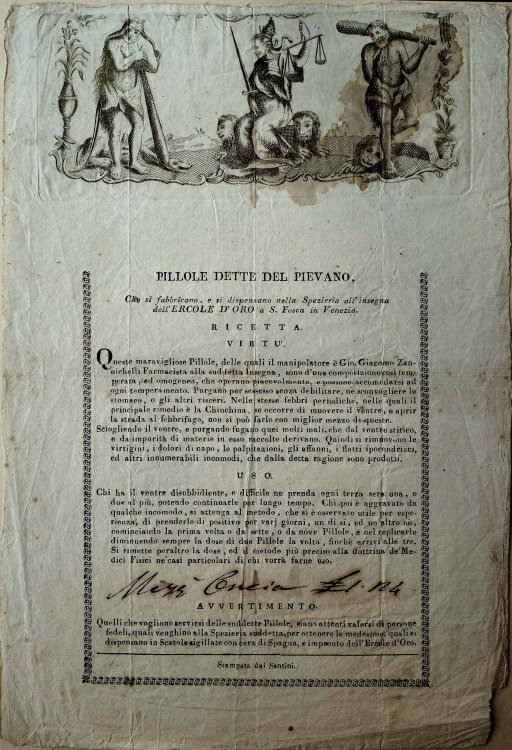 PILLOLE DETTE DEL PIEVANO,
Che si fabbricano, e si dispensano nella Spezieria all'insegna
dell'ERCOLE D'ORO a S. Fosca in Venezia.
RICETTA.
VIRTU'.
Queste maravigliose Pillole, delle quali il manipolatore è Gio. Giacomo Zan-
nichelli Farmacista alla suddetta Insegna, sono d'una composizione così tem-
perata, ed omogenea, che operano piacevolmente, e possono accomodarsi ad
ogni temperamento. Purgano per secesso senza debilitare, nè sconvogliere lo
stomaco, o gli altri visceri. Nelle stesse febbri periodiche, nelle quali il
principale rimedio è la Chinchina, se occorre di muovere il ventre, e aprir
la strada al febbrifugo, non si può farlo con miglior mezzo di queste.
Sciogliendo il ventre, e purgando fugan quei molti mali, che dal ventre stitico,
e da impurità di materie in esso raccolte derivano. Quindi si rimuovono le
virtigini, i dolori di capo, le palpitazioni, gli affanni, i flatti ipocondrici,
ed altri innumerabili incomodi, che dalla detta ragione sono prodotti.
USO.
Chi ha il ventre disubbidiente, e difficile ne prenda ogni terza sera una, o
due al più, potendo continuarle per lungo tempo. Chi poi è aggravato da
qualche incomodo, si attenga al metodo, che si è osservato utile per espe-
rienza, di prenderle di positivo per varj giorni, un di sì, ed un altro no,
cominciando la prima volta o da sette, o da nove Pillole, e nel replicarle
diminuendo sempre la dose di due Pillole la volta, finchè arrivi alle tre.
Si rimette peraltro la dose, ed il metodo più preciso alla dottrina de' Me-
dici Fisici ne' casi particolari di chi vorrà farne uso.
Mezz Oncia
AVVERTIMENTO.
Quelli che vogliono servirsi delle suddette Pillole, siano attenti valersi di persone
fedeli, quali venghino alla Spezieria suddetta, per ottenere le medesime, quali si
dispensano in Scatole sigillate con cera di Spagna, e impronto dell'Ercole d'Oro.
Stampata dai Santini.